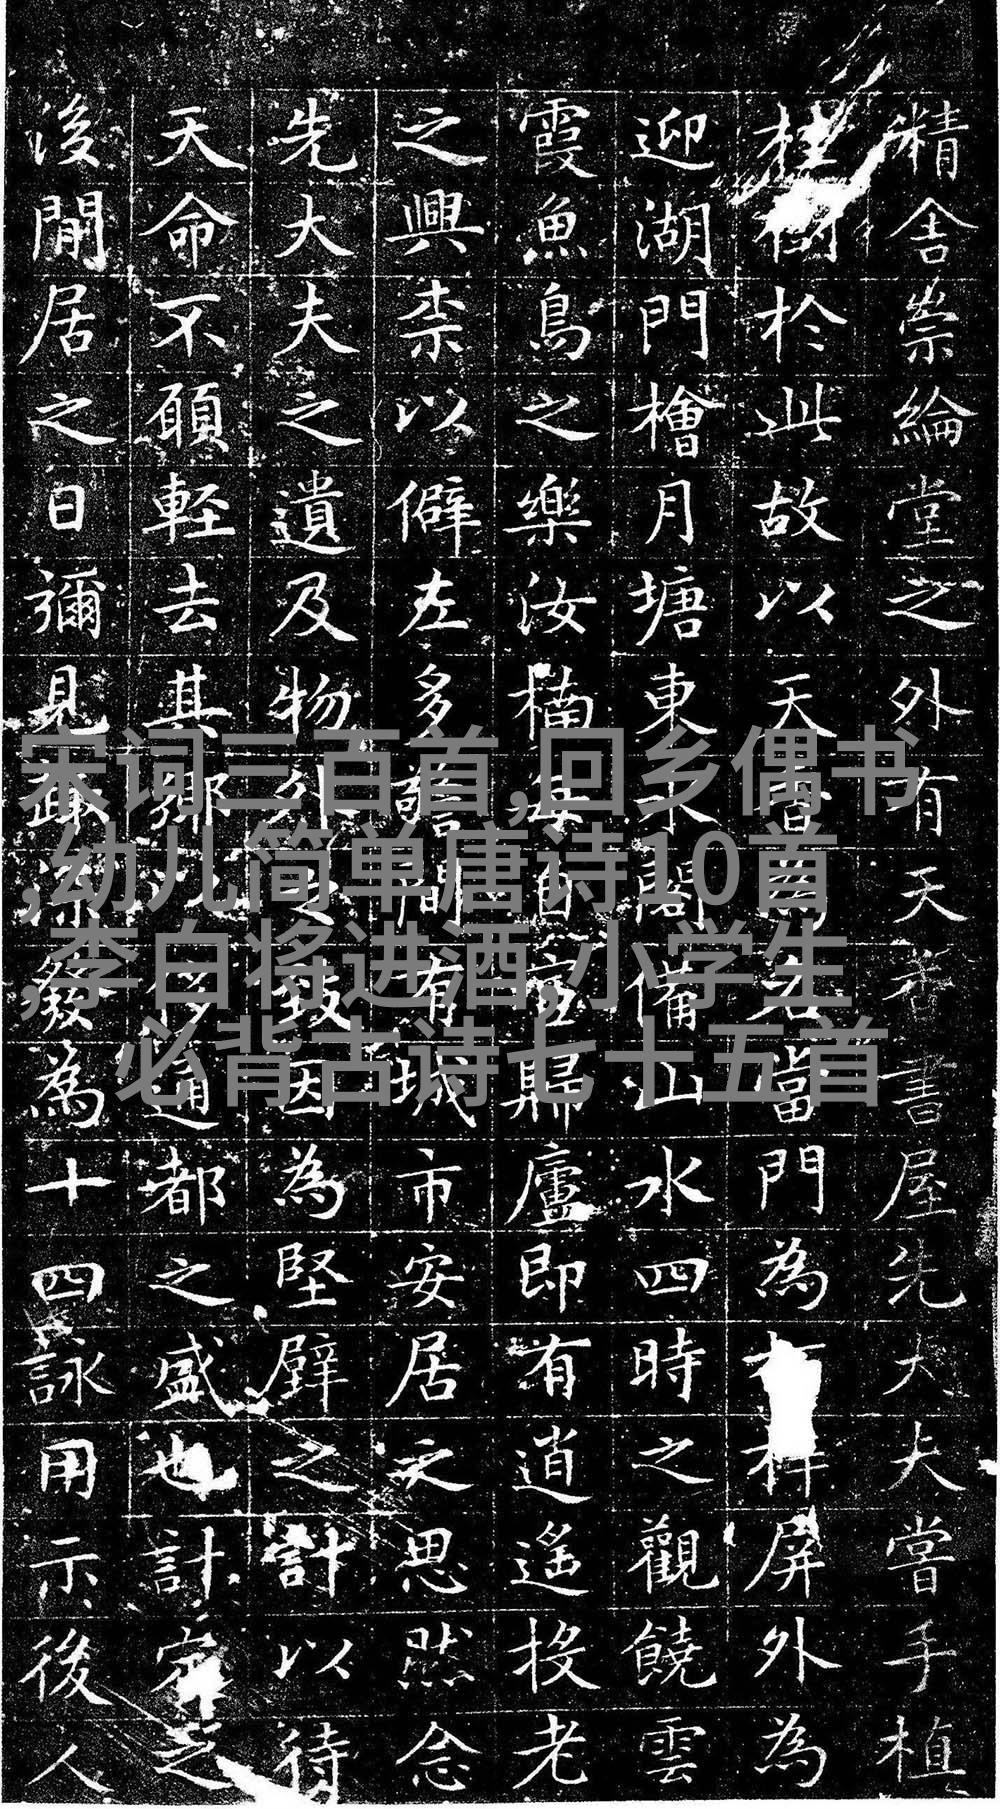 精舍崇綸堂之外有天香書屋先大夫嘗手植
桂樹於此故以天香爲名當門為屏外為
迎湖門檜月塘東水閣備山水四時之觀饒雲
霞魚鳥之樂汝楠每自宦歸廬即有逍遙投老
之興柰以僻左多譫間有城市安居之思然念
先大夫之遺及物外致因為堅壁之計以待
天命不願輕去其鄉以侈通都之盛也計定之
後閒居之日彌見發為十四詠用示後人
宋词三百首,回乡偶书
,幼儿简单唐诗10首
,李白将进酒,小学生
必背古诗七十五首